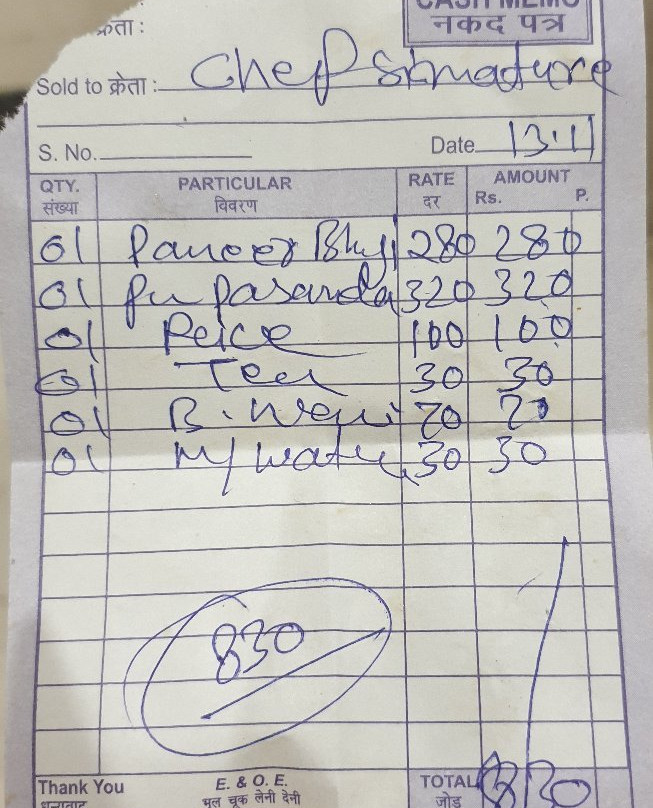 CASH MEMO
नकद पत्र
क्रेता :
Sold to क्रेता : Chef
S. No. Date 13.11
QTY. PARTICULAR RATE AMOUNT
संख्या विवरण दर Rs. P.
01 Paneer Bhuji 280 280
01 Pasanda 320 320
01 Reice 100 100
01 Tea 30 30
01 B. 70 70
01 M/ Water 30 30
830
Thank You E. & O. E. TOTAL 830
धन्यवाद भूल चूक लेनी देनी जोड़